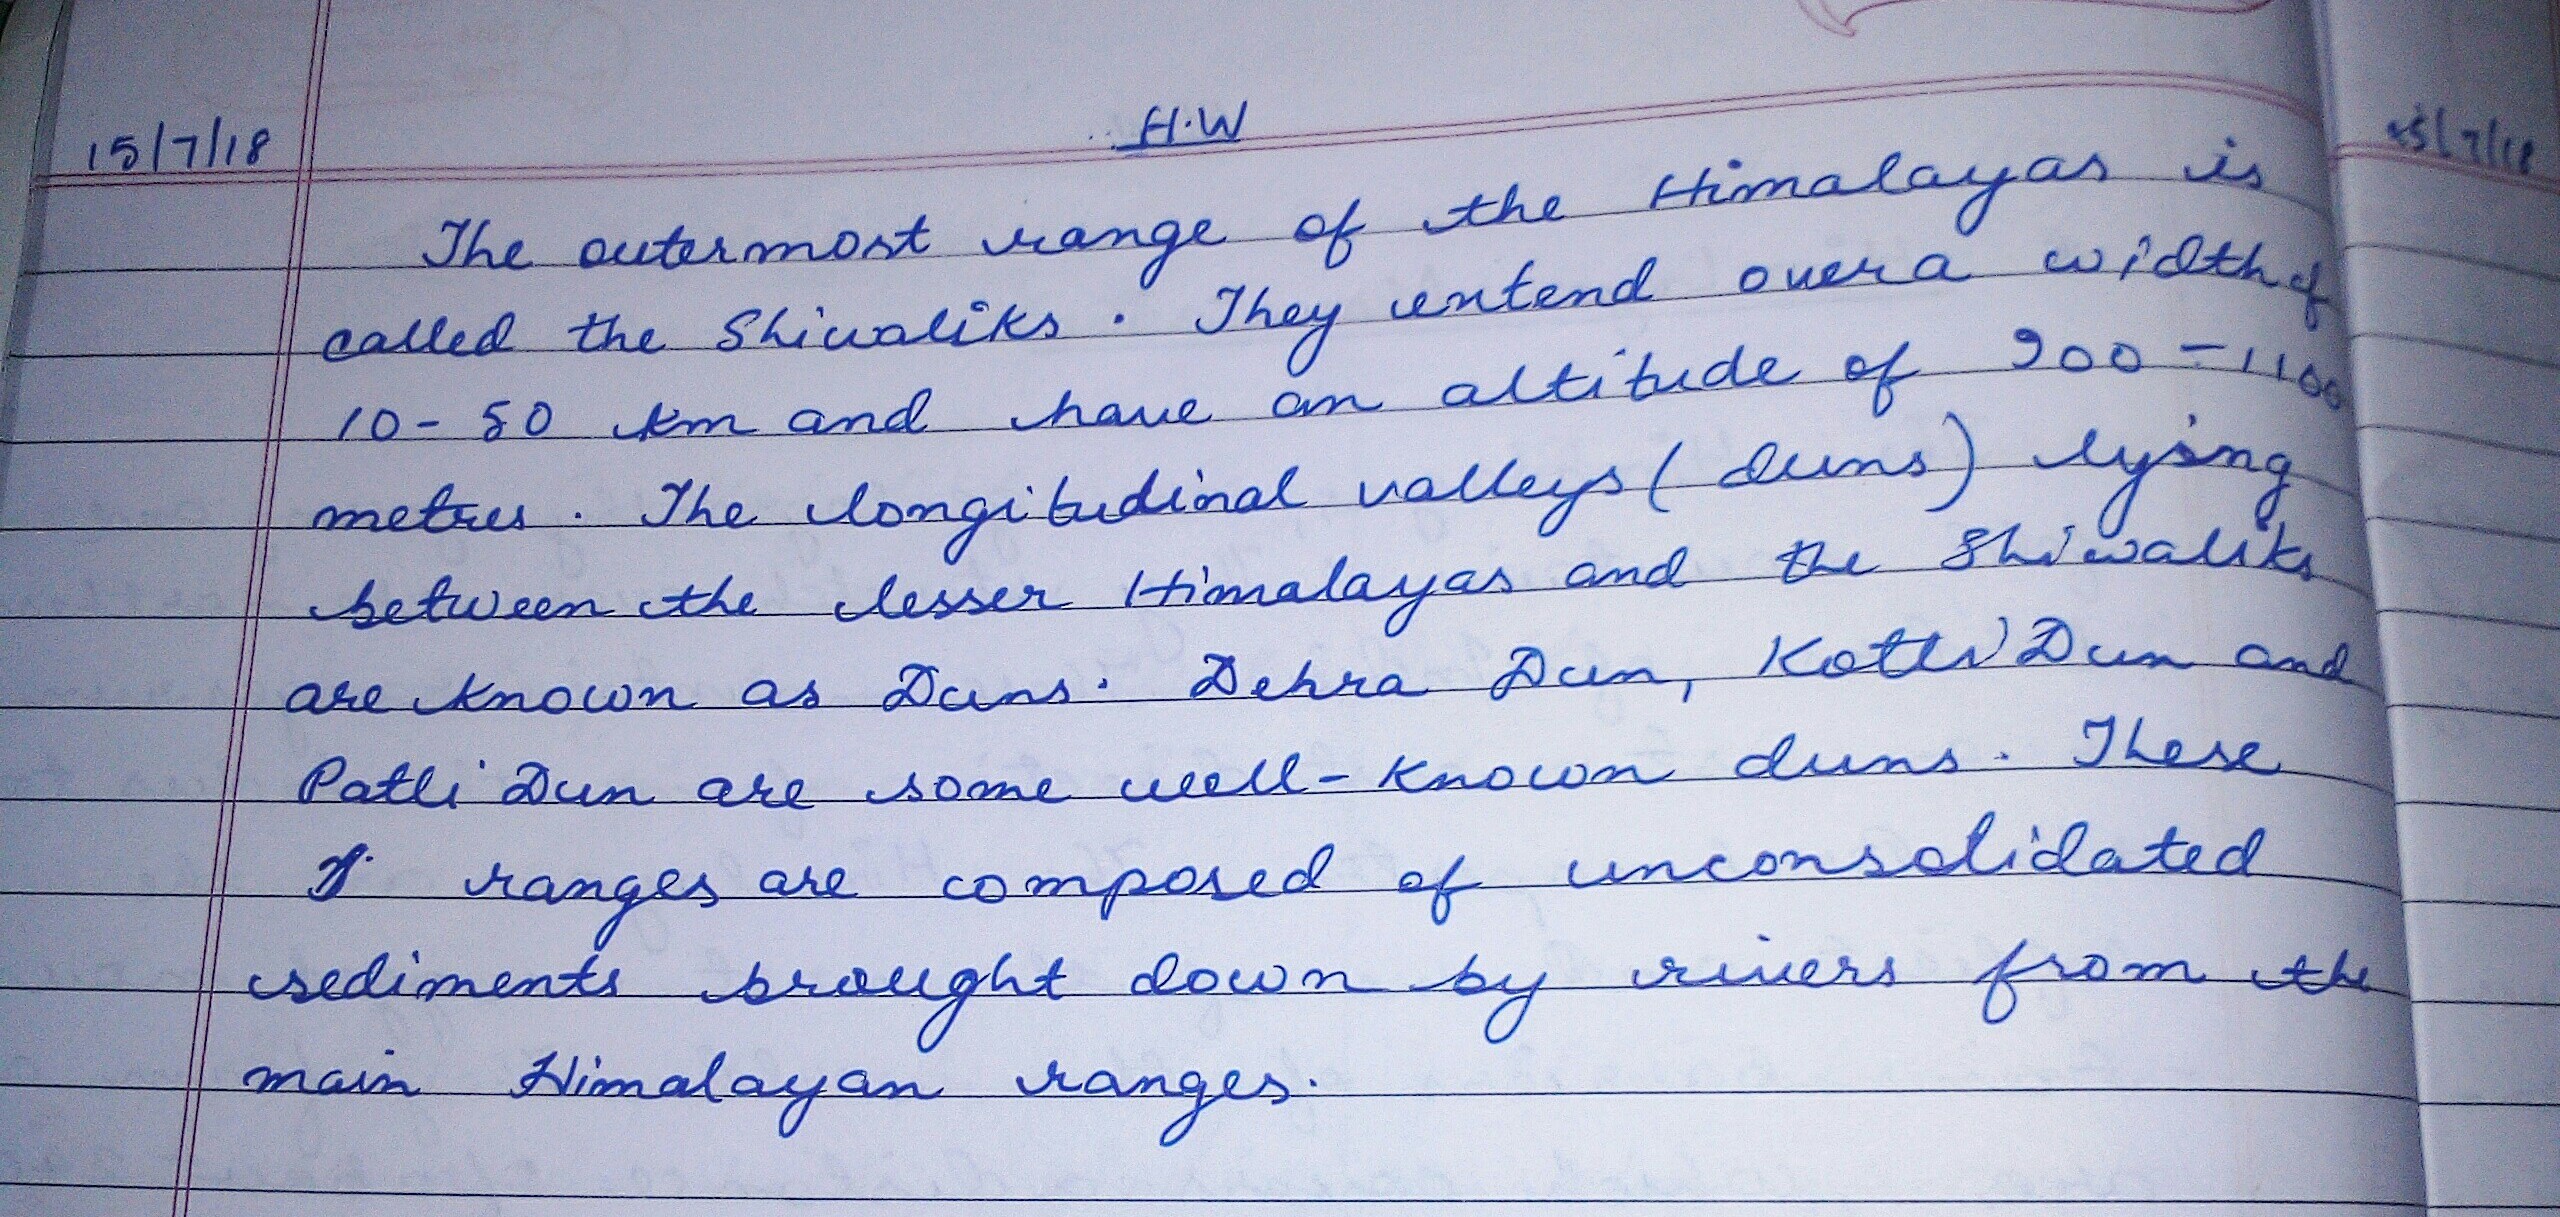 15/7/18
H.W
The outermost range of the Himalayas is
called the Shiwaliks. They extend over a width of
10-50 km and have an altitude of 900-1100
metres. The longitudinal valleys (duns) lying
between the lesser Himalayas and the Shiwaliks
are known as Duns. Dehra Dun, Kotli Dun and
Patli Dun are some well-known duns. These
ranges are composed of unconsolidated
sediments brought down by rivers from the
main Himalayan ranges.
15/7/18